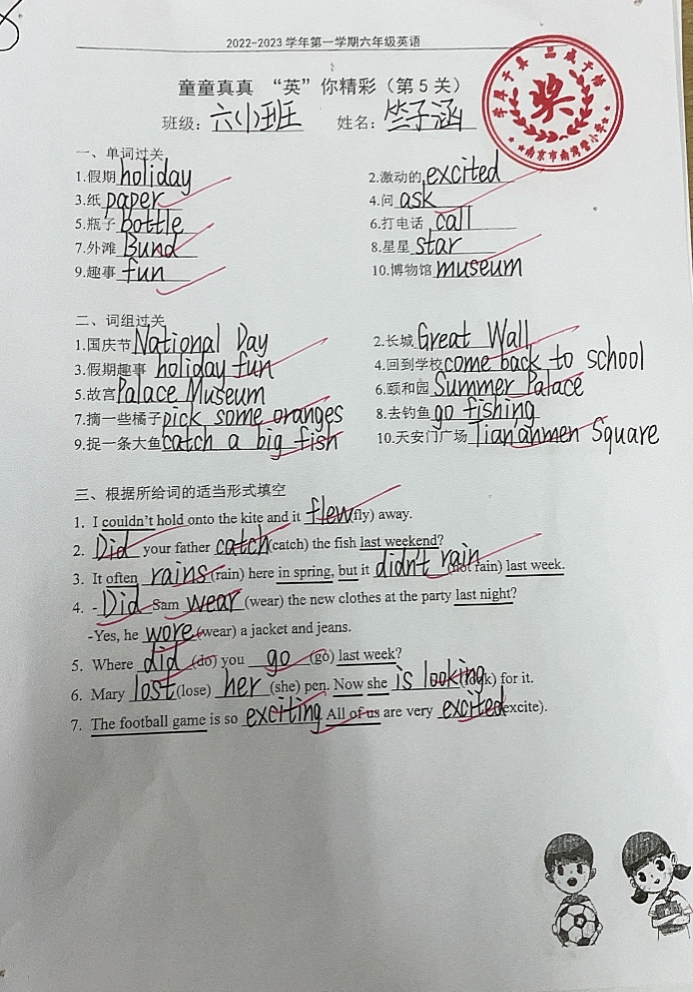 2022-2023 学年第一学期六年级英语
童童真真 “英”你精彩（第 5 关）
班级: 六小班 姓名: 竺子涵
奖
南京市南湾营小学
一、单词过关
1.假期 holiday 2.激动的 excited
3.纸 paper 4.问 ask
5.瓶子 bottle 6.打电话 call
7.外滩 Bund 8.星星 star
9.趣事 fun 10.博物馆 museum
二、词组过关
1.国庆节 National Day 2.长城 Great Wall
3.假期趣事 holiday fun 4.回到学校 come back to school
5.故宫 Palace Museum 6.颐和园 Summer Palace
7.摘一些橘子 pick some oranges 8.去钓鱼 go fishing
9.捉一条大鱼 catch a big fish 10.天安门广场 Tian'anmen Square
三、根据所给词的适当形式填空
1. I couldn't hold onto the kite and it flew (fly) away.
2. Did your father catch (catch) the fish last weekend?
3. It often rains (rain) here in spring, but it didn't rain (not rain) last week.
4. - Did Sam wear (wear) the new clothes at the party last night?
-Yes, he wore (wear) a jacket and jeans.
5. Where did (do) you go (go) last week?
6. Mary lost (lose) her (she) pen. Now she is looking (look) for it.
7. The football game is so exciting All of us are very excited (excite).